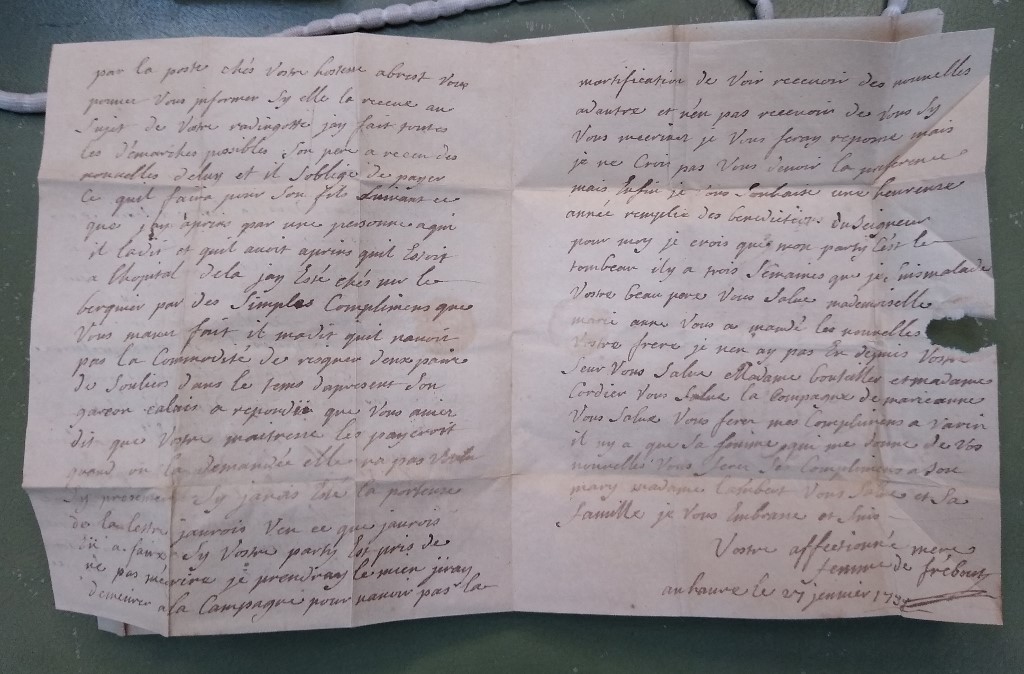 par la poste chés vostre hostesse abrest vous
pouvez vous jnformer Sy elle la receue au
Sujet de votre radingotte jay fait toutes
les démarches possibles Son pere a receu des
nouvelles deluy et il Soblige de payer
ce quil faira pour Son fils Suivant ce
que jay apris par une personne aqui
il ladit et quil avoit apris quil Estoit
a lhopital dela jay Esté chés mr le
berquier par des Simples Complimens que
vous maves fait il madit quil navoit
pas la Commodité de risquer deux paire
de Souliers dans le tems dapresent Son
garcon calais a repondu que vous aviez
dit que vostre maitresse les payeroit
quand on la demandée elle na pas voulu
Sy javais Esté la porteuse
de la lettre jaurois veu ce que jaurois
a faire Sy vostre party Est pris de
ne pas mecrire je prendray le mien jiray
demeurer ala Campagne pour navoir pas la
mortification de voir recevoir des nouvelles
adautre et nen pas recevoir de vous Sy
vous mecrivez je vous feray reponse mais
je ne Crois pas vous devoir la preference
mais Enfin je vous Souhaite une heureuse
année remplie des benedictions du Seigneur
pour moy je crois que mon party Cest le
tombeau il y a trois Semaines que je Suis malade
vostre beau pere vous Salue mademoiselle
marie anne vous a mandé les nouvelles
vostre frere je nen ay pas Eu depuis vostre
Seur vous Salue Madame bouteiller et madame
Cordier vous Salue la Compagne de marie anne
vous Salue vous ferez mes Complimens a varin
il ny a que Sa femme qui me donne de vos
nouvelles vous ferez Ses Complimens a Son
mary madame lambert vous Salue et Sa
famille je vous Embrasse et Suis
Vostre affectionné mere
femme de frebourg
au havre le 27 jenvier